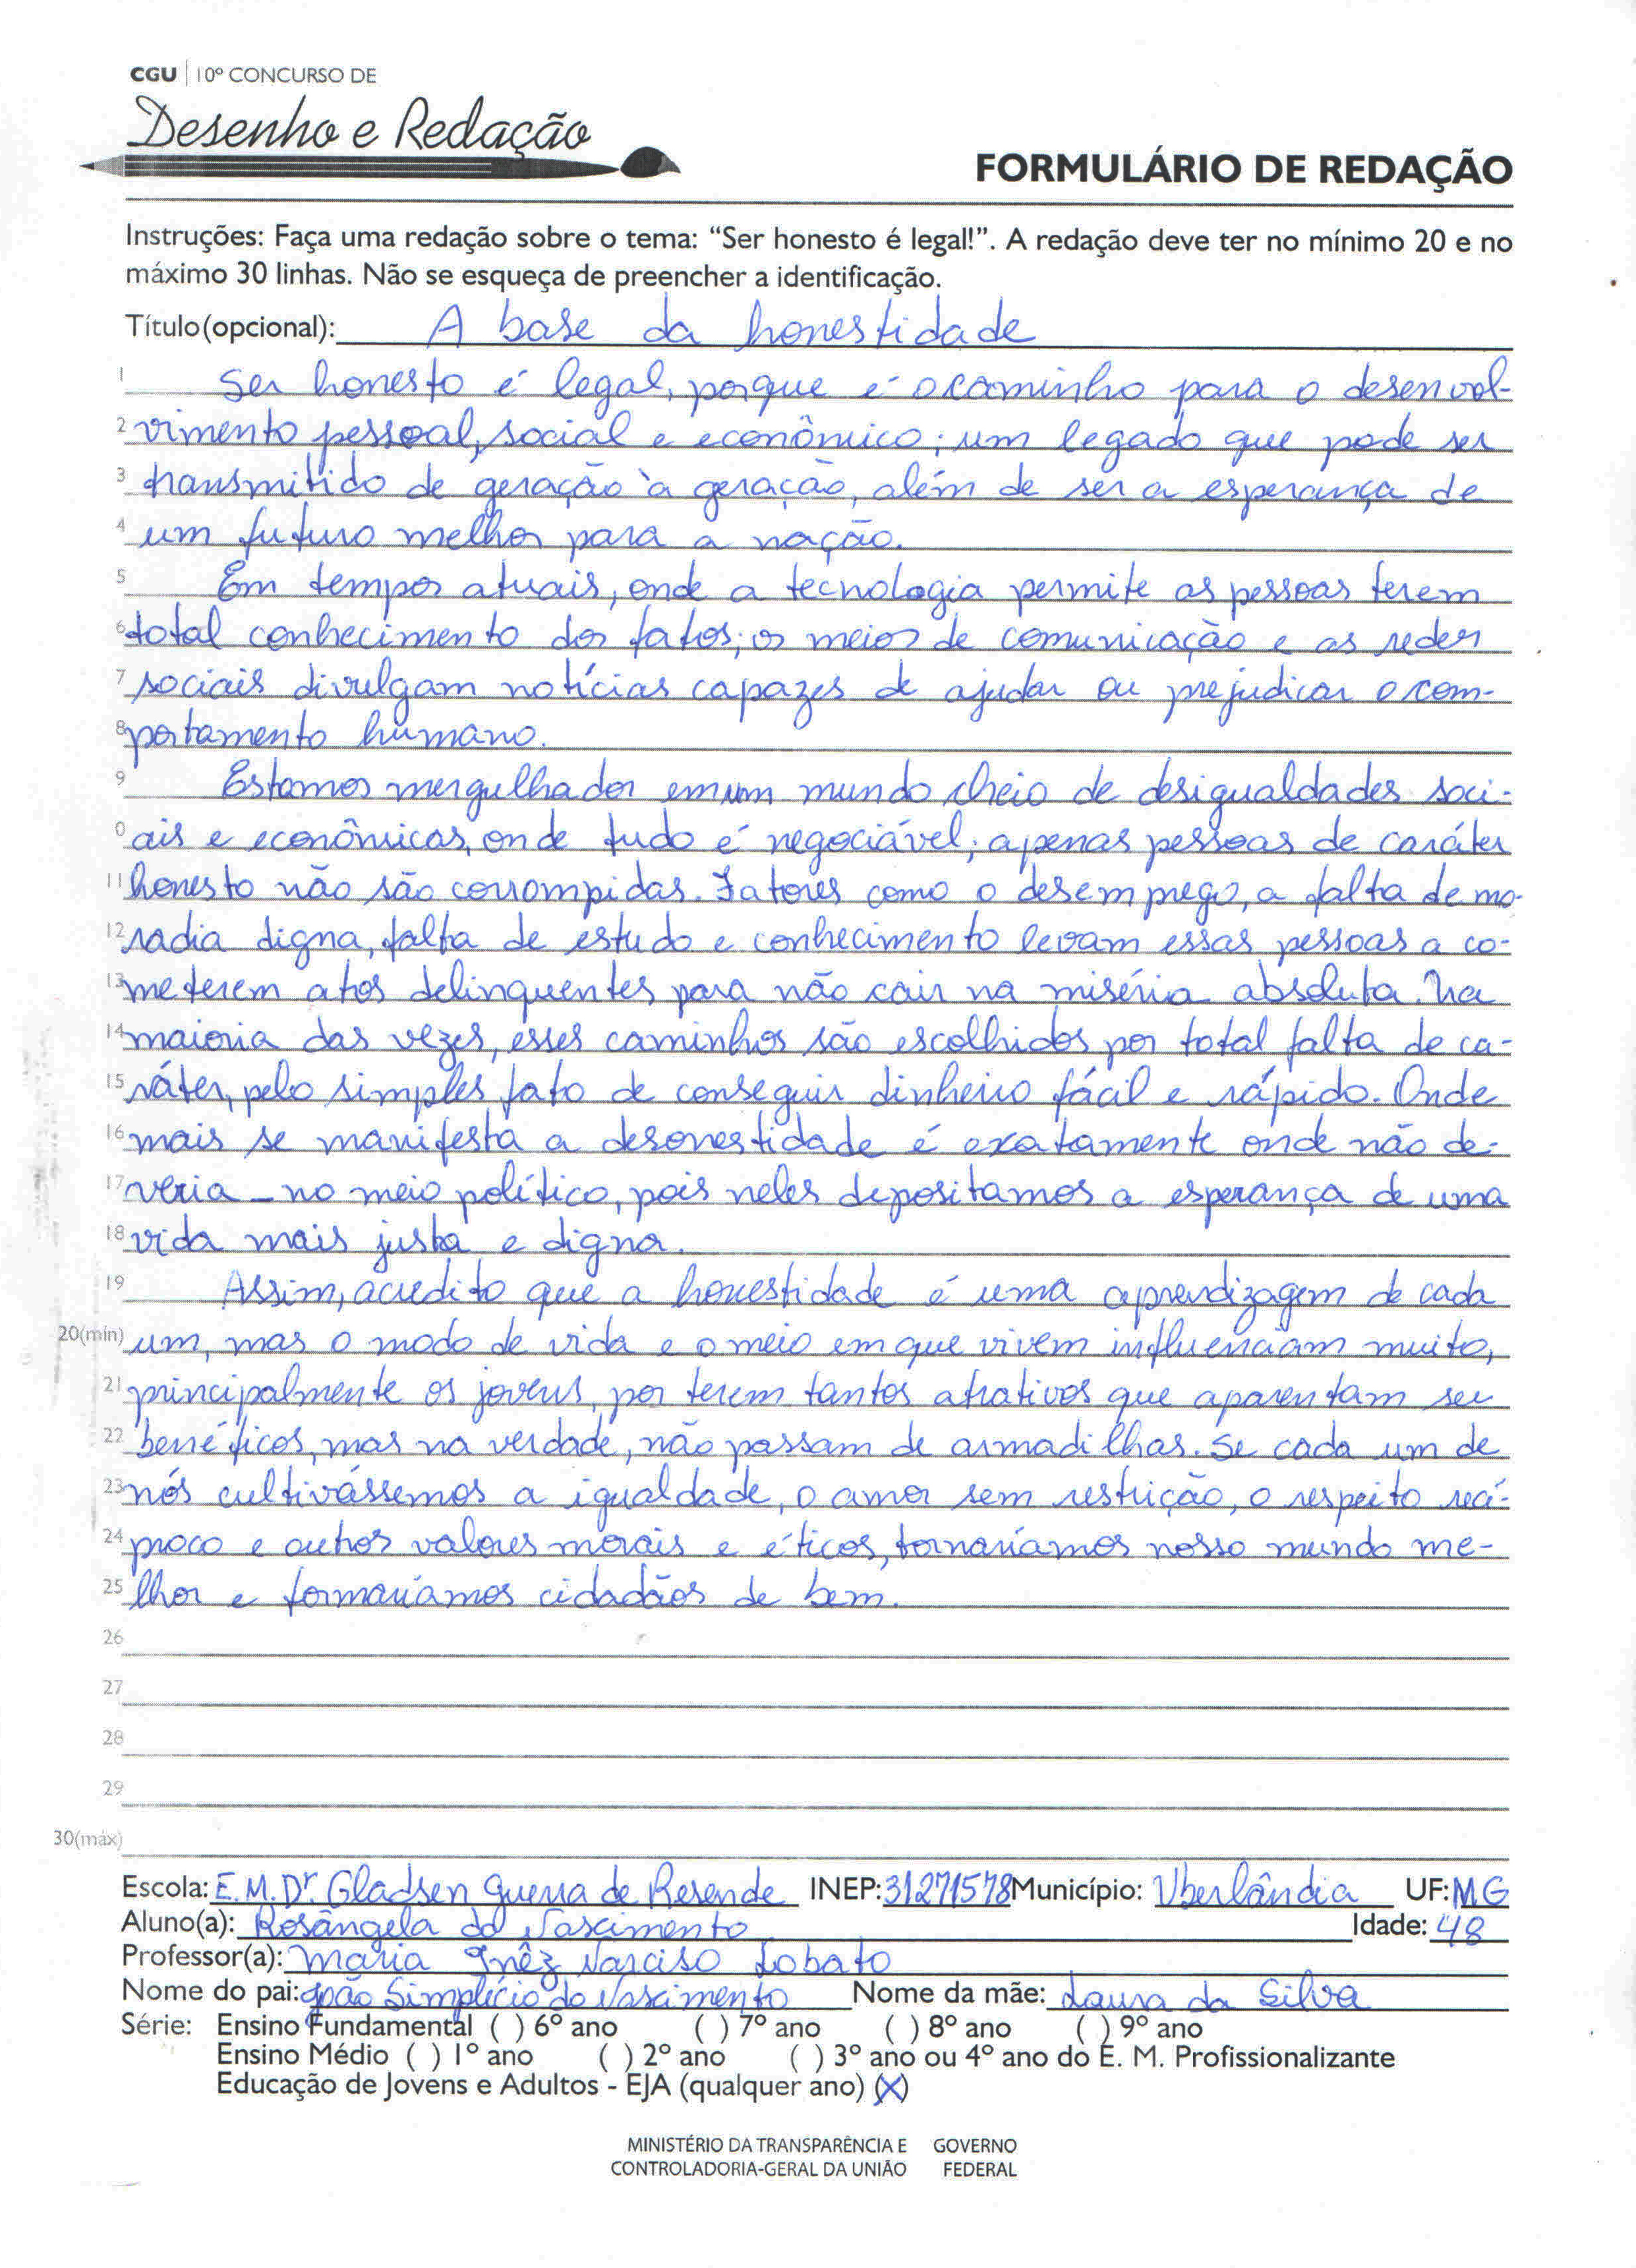 CGU | 10º CONCURSO DE
Desenho e Redação
FORMULÁRIO DE REDAÇÃO
Instruções: Faça uma redação sobre o tema: “Ser honesto é legal!”. A redação deve ter no mínimo 20 e no
máximo 30 linhas. Não se esqueça de preencher a identificação.
Título(opcional): A base da honestidade
1 Ser honesto é legal, porque é o caminho para o desenvol-
2 vimento pessoal, social e econômico; um legado que pode ser
3 transmitido de geração à geração, além de ser a esperança de
4 um futuro melhor para a nação.
5 Em tempos atuais, onde a tecnologia permite as pessoas terem
6 total conhecimento dos fatos; os meios de comunicação e as redes
7 sociais divulgam notícias capazes de ajudar ou prejudicar o com-
8 portamento humano.
9 Estamos mergulhados em um mundo cheio de desigualdades soci-
0 ais e econômicas, onde tudo é negociável; apenas pessoas de caráter
11 honesto não são corrompidas. Fatores como o desemprego, a falta de mo-
12 radia digna, falta de estudo e conhecimento levam essas pessoas a co-
13 meterem atos delinquentes para não cair na miséria absoluta. Na
14 maioria das vezes, esses caminhos são escolhidos por total falta de ca-
15 ráter, pelo simples fato de conseguir dinheiro fácil e rápido. Onde
16 mais se manifesta a desonestidade é exatamente onde não de-
17 veria - no meio político, pois neles depositamos a esperança de uma
18 vida mais justa e digna.
19 Assim, acredito que a honestidade é uma aprendizagem de cada
20(mín) um, mas o modo de vida e o meio em que vivem influenciam muito,
21 principalmente os jovens, por terem tantos atrativos que aparentam ser
22 benéficos, mas na verdade, não passam de armadilhas. Se cada um de
23 nós cultivássemos a igualdade, o amor sem restrição, o respeito recí-
24 proco e outros valores morais e éticos, tornaríamos nosso mundo me-
25 lhor e formaríamos cidadãos de bem.
26
27
28
29
30(máx)
Escola: E.M.Dr. Gladsen Guerra de Resende INEP: 31271578 Município: Uberlândia UF: MG
Aluno(a): Rosângela do Nascimento Idade: 48
Professor(a): Maria Inêz Narciso Lobato
Nome do pai: João Simplício do Nascimento Nome da mãe: Laura da Silva
Série: Ensino Fundamental ( ) 6º ano ( ) 7º ano ( ) 8º ano ( ) 9º ano
Ensino Médio ( ) 1º ano ( ) 2º ano ( ) 3º ano ou 4º ano do E. M. Profissionalizante
Educação de Jovens e Adultos - EJA (qualquer ano) (X)
MINISTÉRIO DA TRANSPARÊNCIA E GOVERNO
CONTROLADORIA-GERAL DA UNIÃO FEDERAL